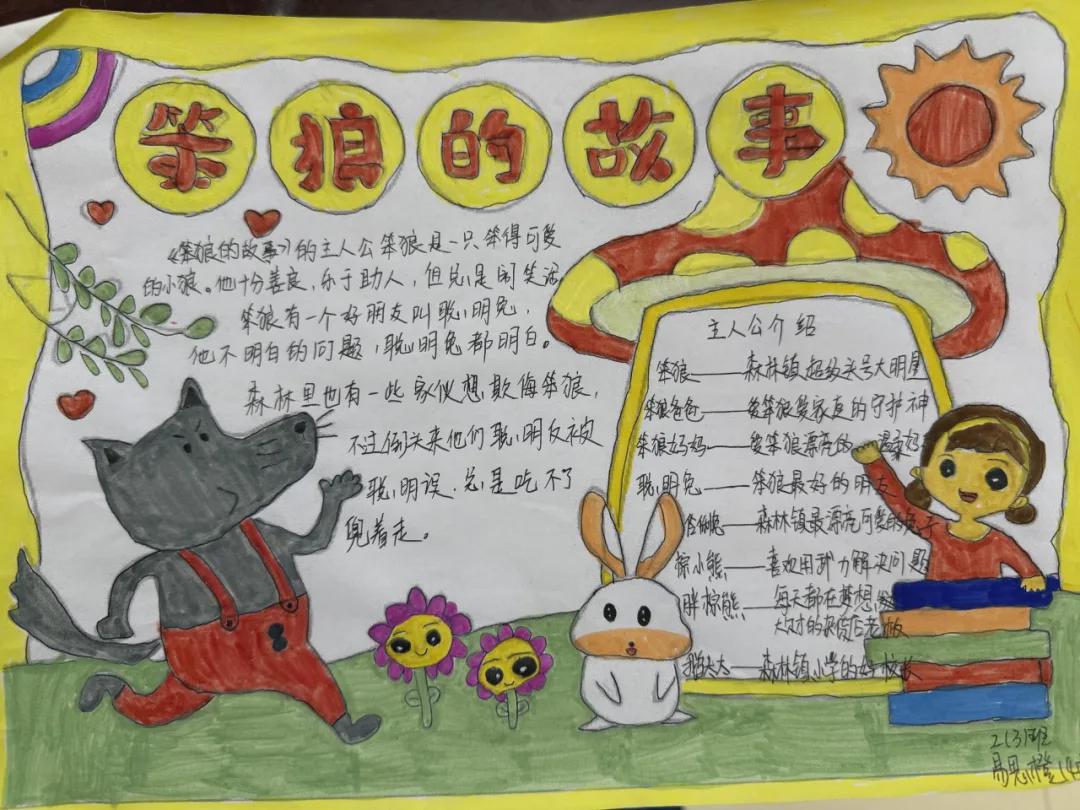 笨狼的故事
《笨狼的故事》的主人公笨狼是一只笨得可爱
的小狼。他十分善良,乐于助人,但总是闹笑话
笨狼有一个好朋友叫聪明兔,
他不明白的问题,聪明兔都明白。
森林里也有一些家伙想欺侮笨狼,
不过倒头来他们聪明反被
聪明误.总是吃不了
兜着走。
主人公介绍
笨狼——森林镇超级头号大明星
笨狼爸爸——爱笨狼爱家庭的守护神
笨狼妈妈——爱笨狼漂亮的温柔妈
聪明兔——笨狼最好的朋友
——森林镇最漂亮可爱的兔子
棕小熊——喜欢用武力解决问题
胖棕熊——每天都在梦想发
大财的杂货店老板
太太——森林镇小学的好校长
2(3)班
易思橙